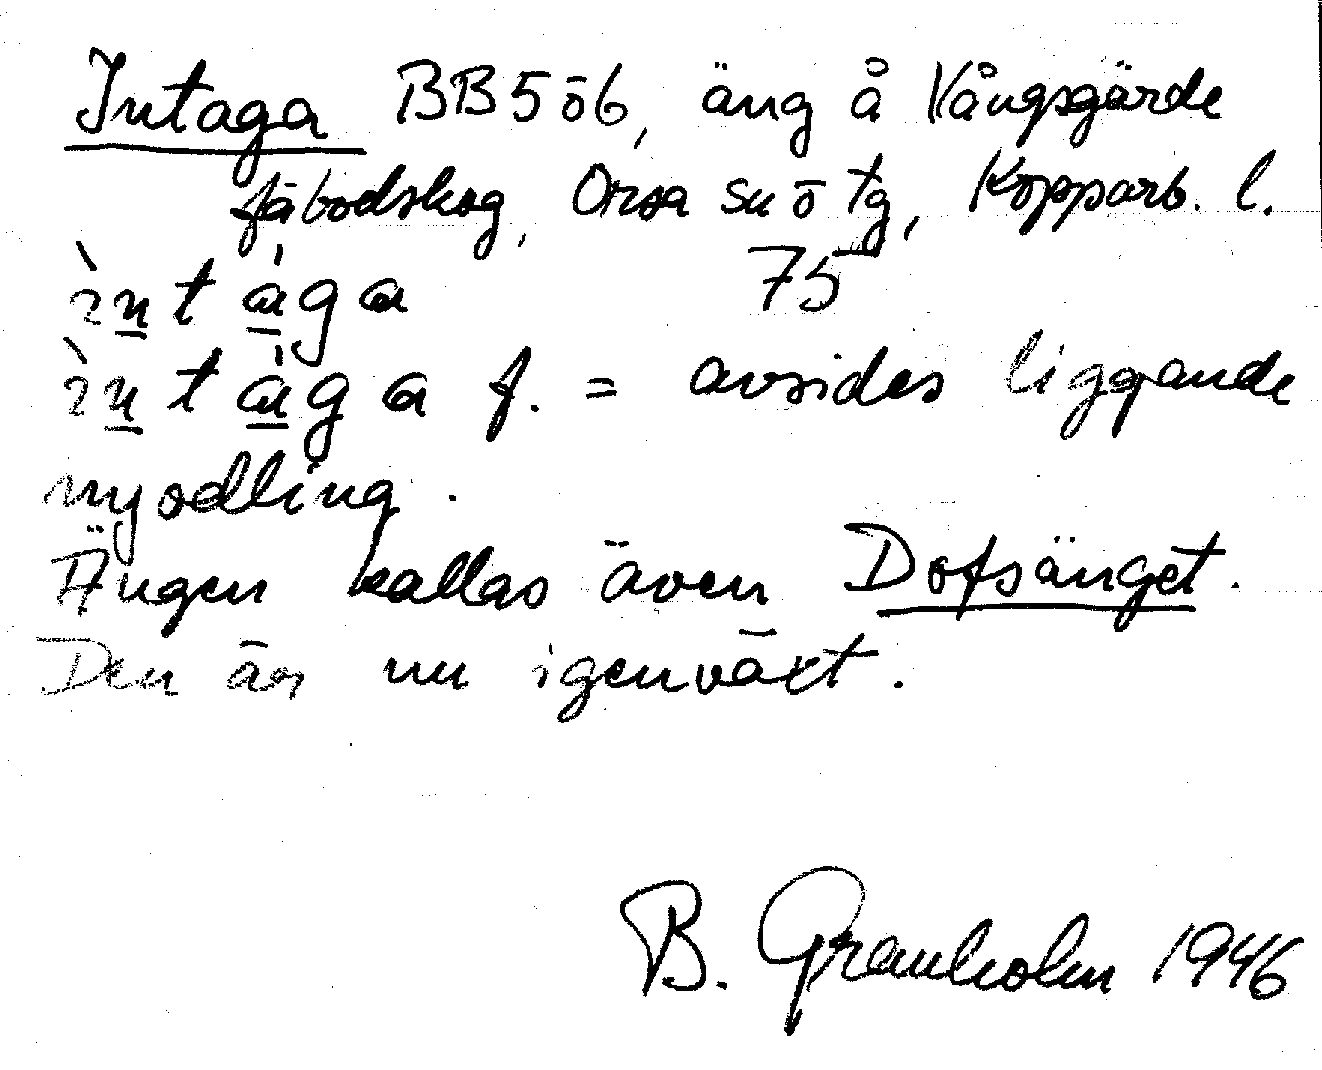 Intaga BB5ö6, äng å Vångsgärde
fäbodskog, Orsa sn ö tg, Kopparb. l.
ìntága 75
ìntága f. = avsides liggande
nyodling.
Ängen kallas även Dofsänget.
Den är nu igenväxt.
B. Granholm 1946